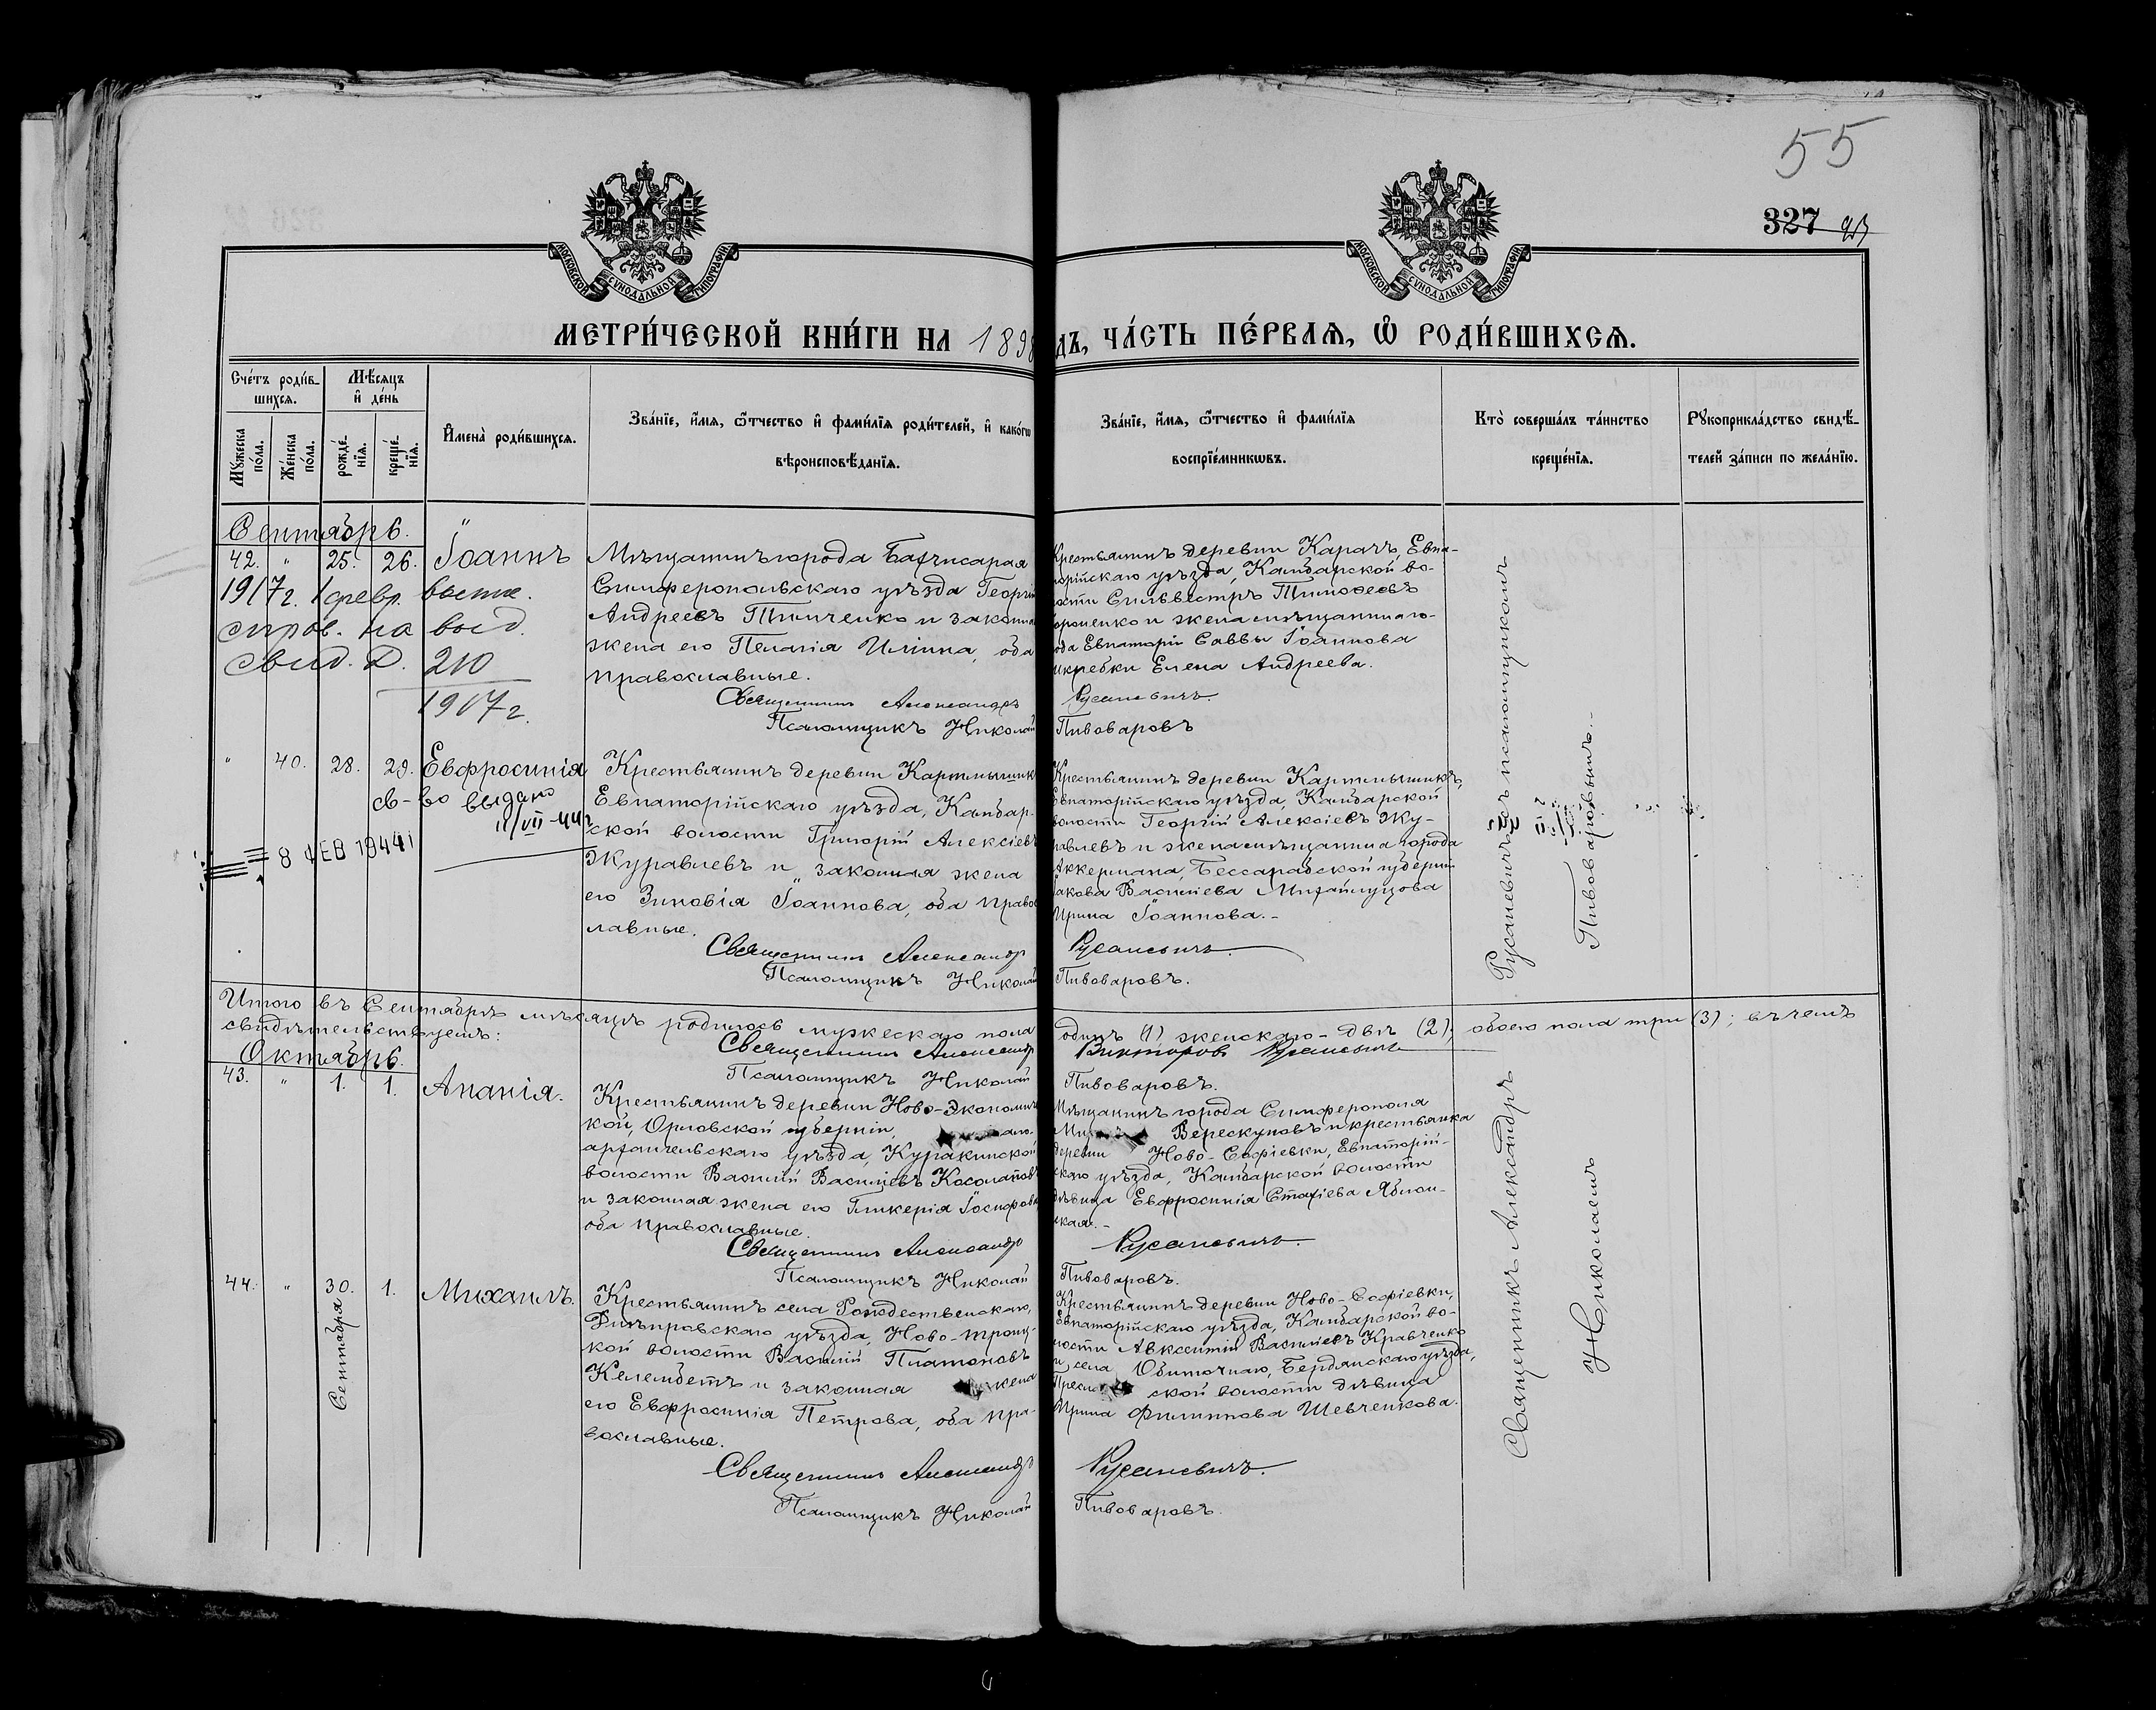 55
327
МОСКОВСКОЙ СѴНОДАЛЬНОЙ ТИПОГРАФІИ
МОСКОВСКОЙ СѴНОДАЛЬНОЙ ТИПОГРАФІИ
МЕТРИ́ЧЕСКОЙ КНИ́ГИ НА 1898
ДЪ, ЧА́СТЬ ПЕ́РВАѦ, Ѡ҆ РОДИ́ВШИХСѦ.
Сче́тъ роди́в-
шихсѧ.
Мѣ́сѧцъ
и҆ де́нь
Мꙋ́жеска
по́ла.
Же́нска
по́ла.
рожде́-
нїѧ.
креще́-
нїѧ.
И҆мена̀ роди́вшихсѧ.
Зва́нїе, и҆́мѧ, ѻ҆́тчество и҆ фами́лїѧ роди́телей, и҆ како́гѡ
вѣроисповѣ́данїѧ.
Зва́нїе, и҆́мѧ, ѻ҆́тчество и҆ фами́лїѧ
воспрїе́мникѡвъ.
Кто̀ соверша́лъ та́инство
креще́нїѧ.
Рꙋкоприкла́дство свидѣ́-
телей за́писи по жела́нїю.
Сентябрь.
42. " 25. 26. Іоаннъ
1917 г. 1 февр.
справ. на выд.
свид. 210
1917 г.
Мѣщанинъ города Бахчисарая
Симферопольскаго уѣзда Георгій
Андреевъ Тимченко и законная
жена его Пелагія Иліина, оба
православные.
Священникъ Александръ
Псаломщикъ Николай
Крестьянинъ деревни Карачъ, Евпа-
торійскаго уѣзда, Камбарской во-
лости Сильвестръ Тимоѳеевъ
и жена мѣщанина го-
рода Евпаторіи Саввы Іоаннова
Елена Андреева.
Русаневичъ
Пивоваровъ
" 40. 28. 29. Евфросинія
св-во выдано
11/VII-44 г.
8 ФЕВ 1944
Крестьянинъ деревни
Евпаторійскаго уѣзда, Камбар-
ской волости Григорій Алексіевъ
Журавлевъ и законная жена
его Зиновія Іоаннова, оба право-
лавные.
Священникъ Александръ
Псаломщикъ Николай
Крестьянинъ деревни
Евпаторійскаго уѣзда, Камбарской
волости Георгій Алексіевъ Жу-
равлевъ и жена мѣщанина города
Аккермана, Бессарабской губерніи
Іакова Василіева
Ирина Іоаннова.-
Русаневичъ
Пивоваровъ.
Русаневичъ съ псаломщикомъ
Пивоваровымъ.
Итого въ Сентябрѣ мѣсяцѣ родилось мужескаго пола
одинъ (1) женскаго - двѣ (2), обоего пола три (3); въ чемъ
свидѣтельствуемъ:
Священникъ Александръ
Викторовъ Русаневичъ
Псаломщикъ Николай
Пивоваровъ.
Октябрь.
43. " 1. 1. Ананія.
Крестьянинъ деревни Ново-Экономич
кой, Орловской губерніи,
архангельскаго уѣзда, Куракинской
волости Василій Василіевъ Косолаповъ
и законная жена его Гликерія Іосифова
оба православные.
Священникъ Александръ
Псаломщикъ Николай
Мѣщанинъ города Симферополя
Верескуновъ и крестьянка
деревни Ново-Софіевки, Евпаторій-
скаго уѣзда, Камбарской волости
дѣвица Евфросинія Стахіева Яблон-
ская.-
Русаневичъ.
Пивоваровъ.
44. " 30. 1. Михаилъ.
Сентября
Крестьянинъ села Рождественскаго,
Днѣпровскаго уѣзда, Ново-Троиц-
кой волости Василій Платоновъ
Келембетъ и законная жена
его Евфросинія Петрова, оба пра-
вославные.
Священникъ Александръ
Псаломщикъ Николай
Крестьянинъ деревни Ново-Софіевки,
Евпаторійскаго уѣзда, Камбарской во-
лости Авксентій Василіевъ Кравченко
и села Обиточнаго, Бердянскаго уѣзда,
ской волости дѣвица
Ирина Филиппова Шевченкова.
Русаневичъ.
Пивоваровъ.
Священникъ Александръ
Николаемъ